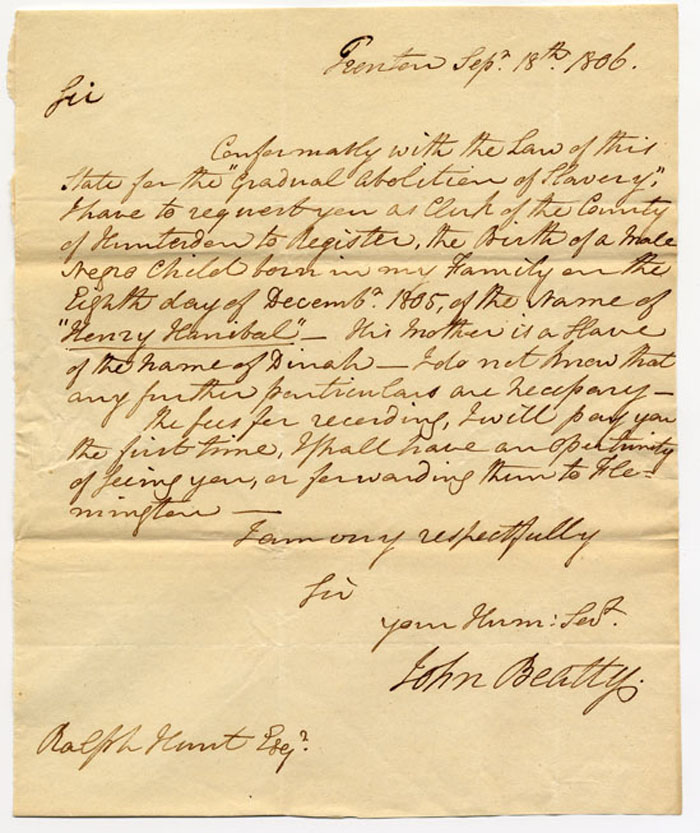 Trenton Sepr. 18th. 1806.
Sir
Conformably with the Law of this
State for the "Gradual Abolition of Slavery",
I have to request you as Clerk of the County
of Hunterdon to Register, the Birth of a Male
Negro Child born in my Family on the
Eighth day of Decembr. 1805, of the Name of
"Henry Hanibal" — His Mother is a Slave
of the name of Dinah — I do not know that
any further particulars are necessary —
the fees for recording, I will pay you
the first time, I shall have an opertunity
of seeing you, or forwarding them to Fle-
mington —
I am very respectfully
Sir
your Hum: Sevt.
John Beatty.
Ralph Hunt Esqr.